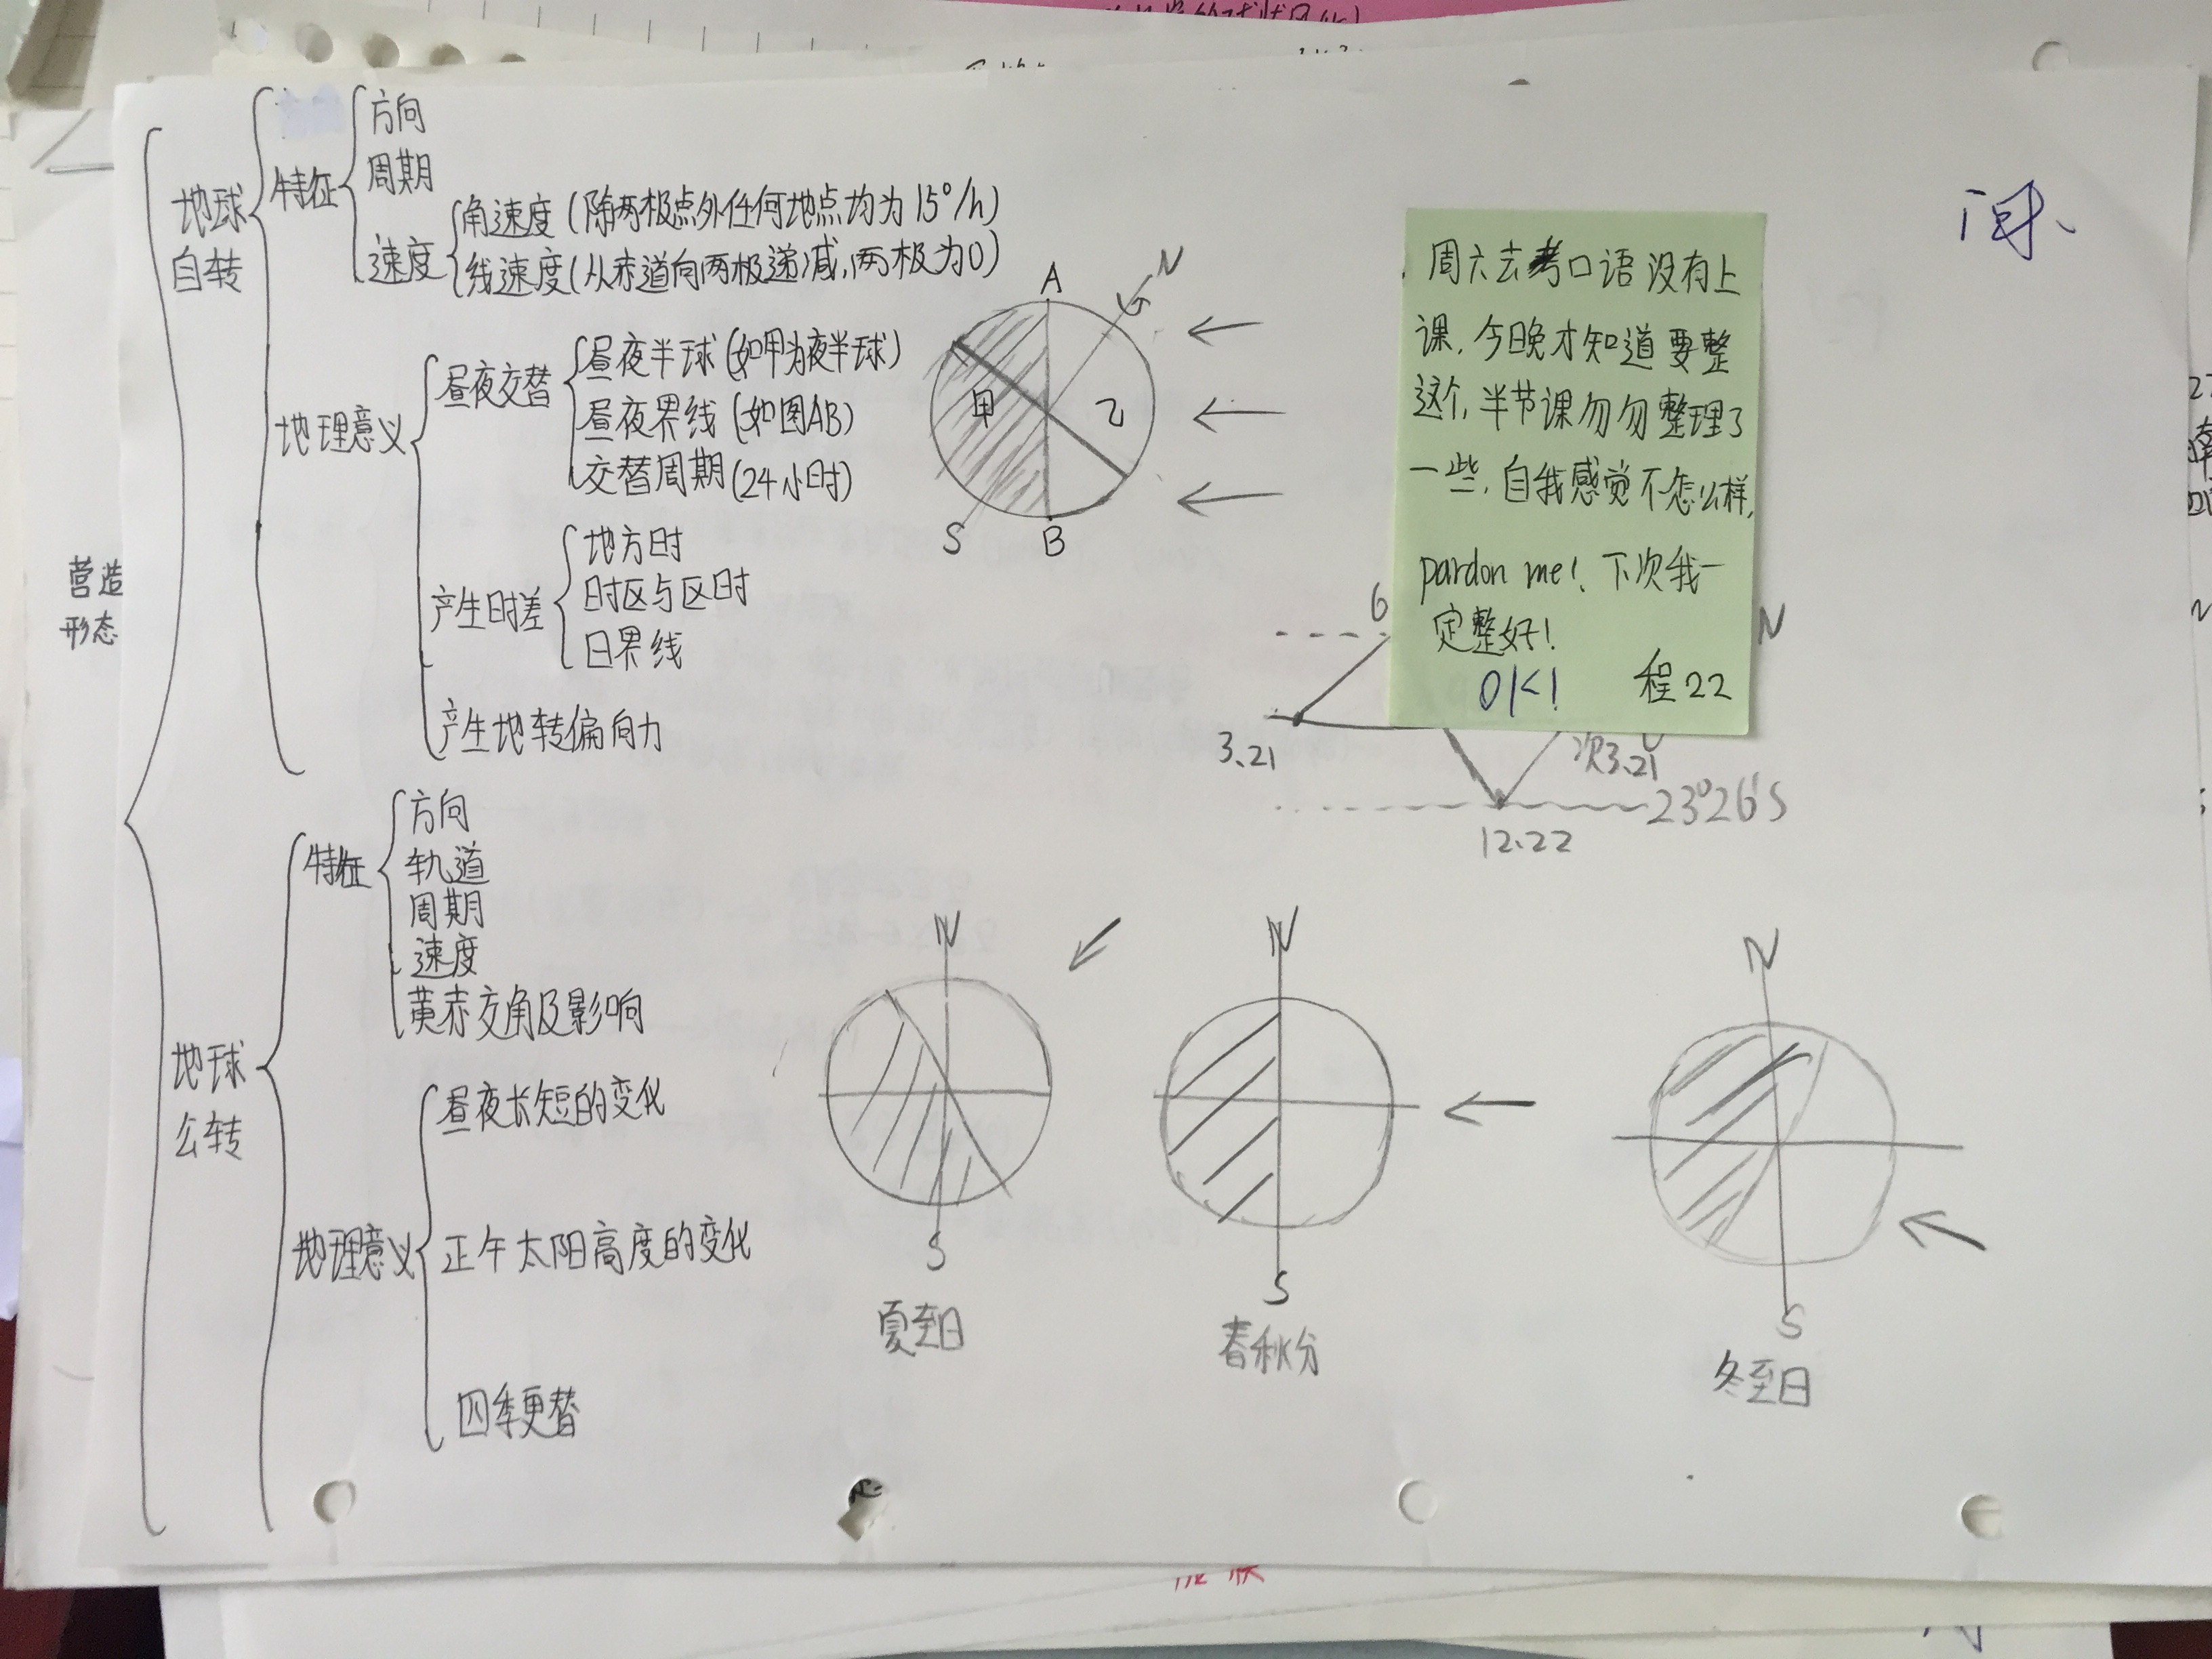 营造
形态
地球
自转
特征
方向
周期
速度
角速度(除两极点外任何地点均为15°/h)
线速度(从赤道向两极递减,两极为0)
地理意义
昼夜交替
昼夜半球(如甲为夜半球)
昼夜界线(如图AB)
交替周期(24小时)
产生时差
地方时
时区与区时
日界线
产生地转偏向力
A
N
甲
乙
S
B
周六去考口语没有上
课,今晚才知道要整
这个,半节课匆匆整理了
一些,自我感觉不怎么样,
pardon me! 下次我一
定整好!
OK!
程22
6
N
3.21
次3.21
23°26'S
12.22
地球
公转
特征
方向
轨道
周期
速度
黄赤交角及影响
地理意义
昼夜长短的变化
正午太阳高度的变化
四季更替
N
S
夏至日
N
S
春秋分
N
S
冬至日